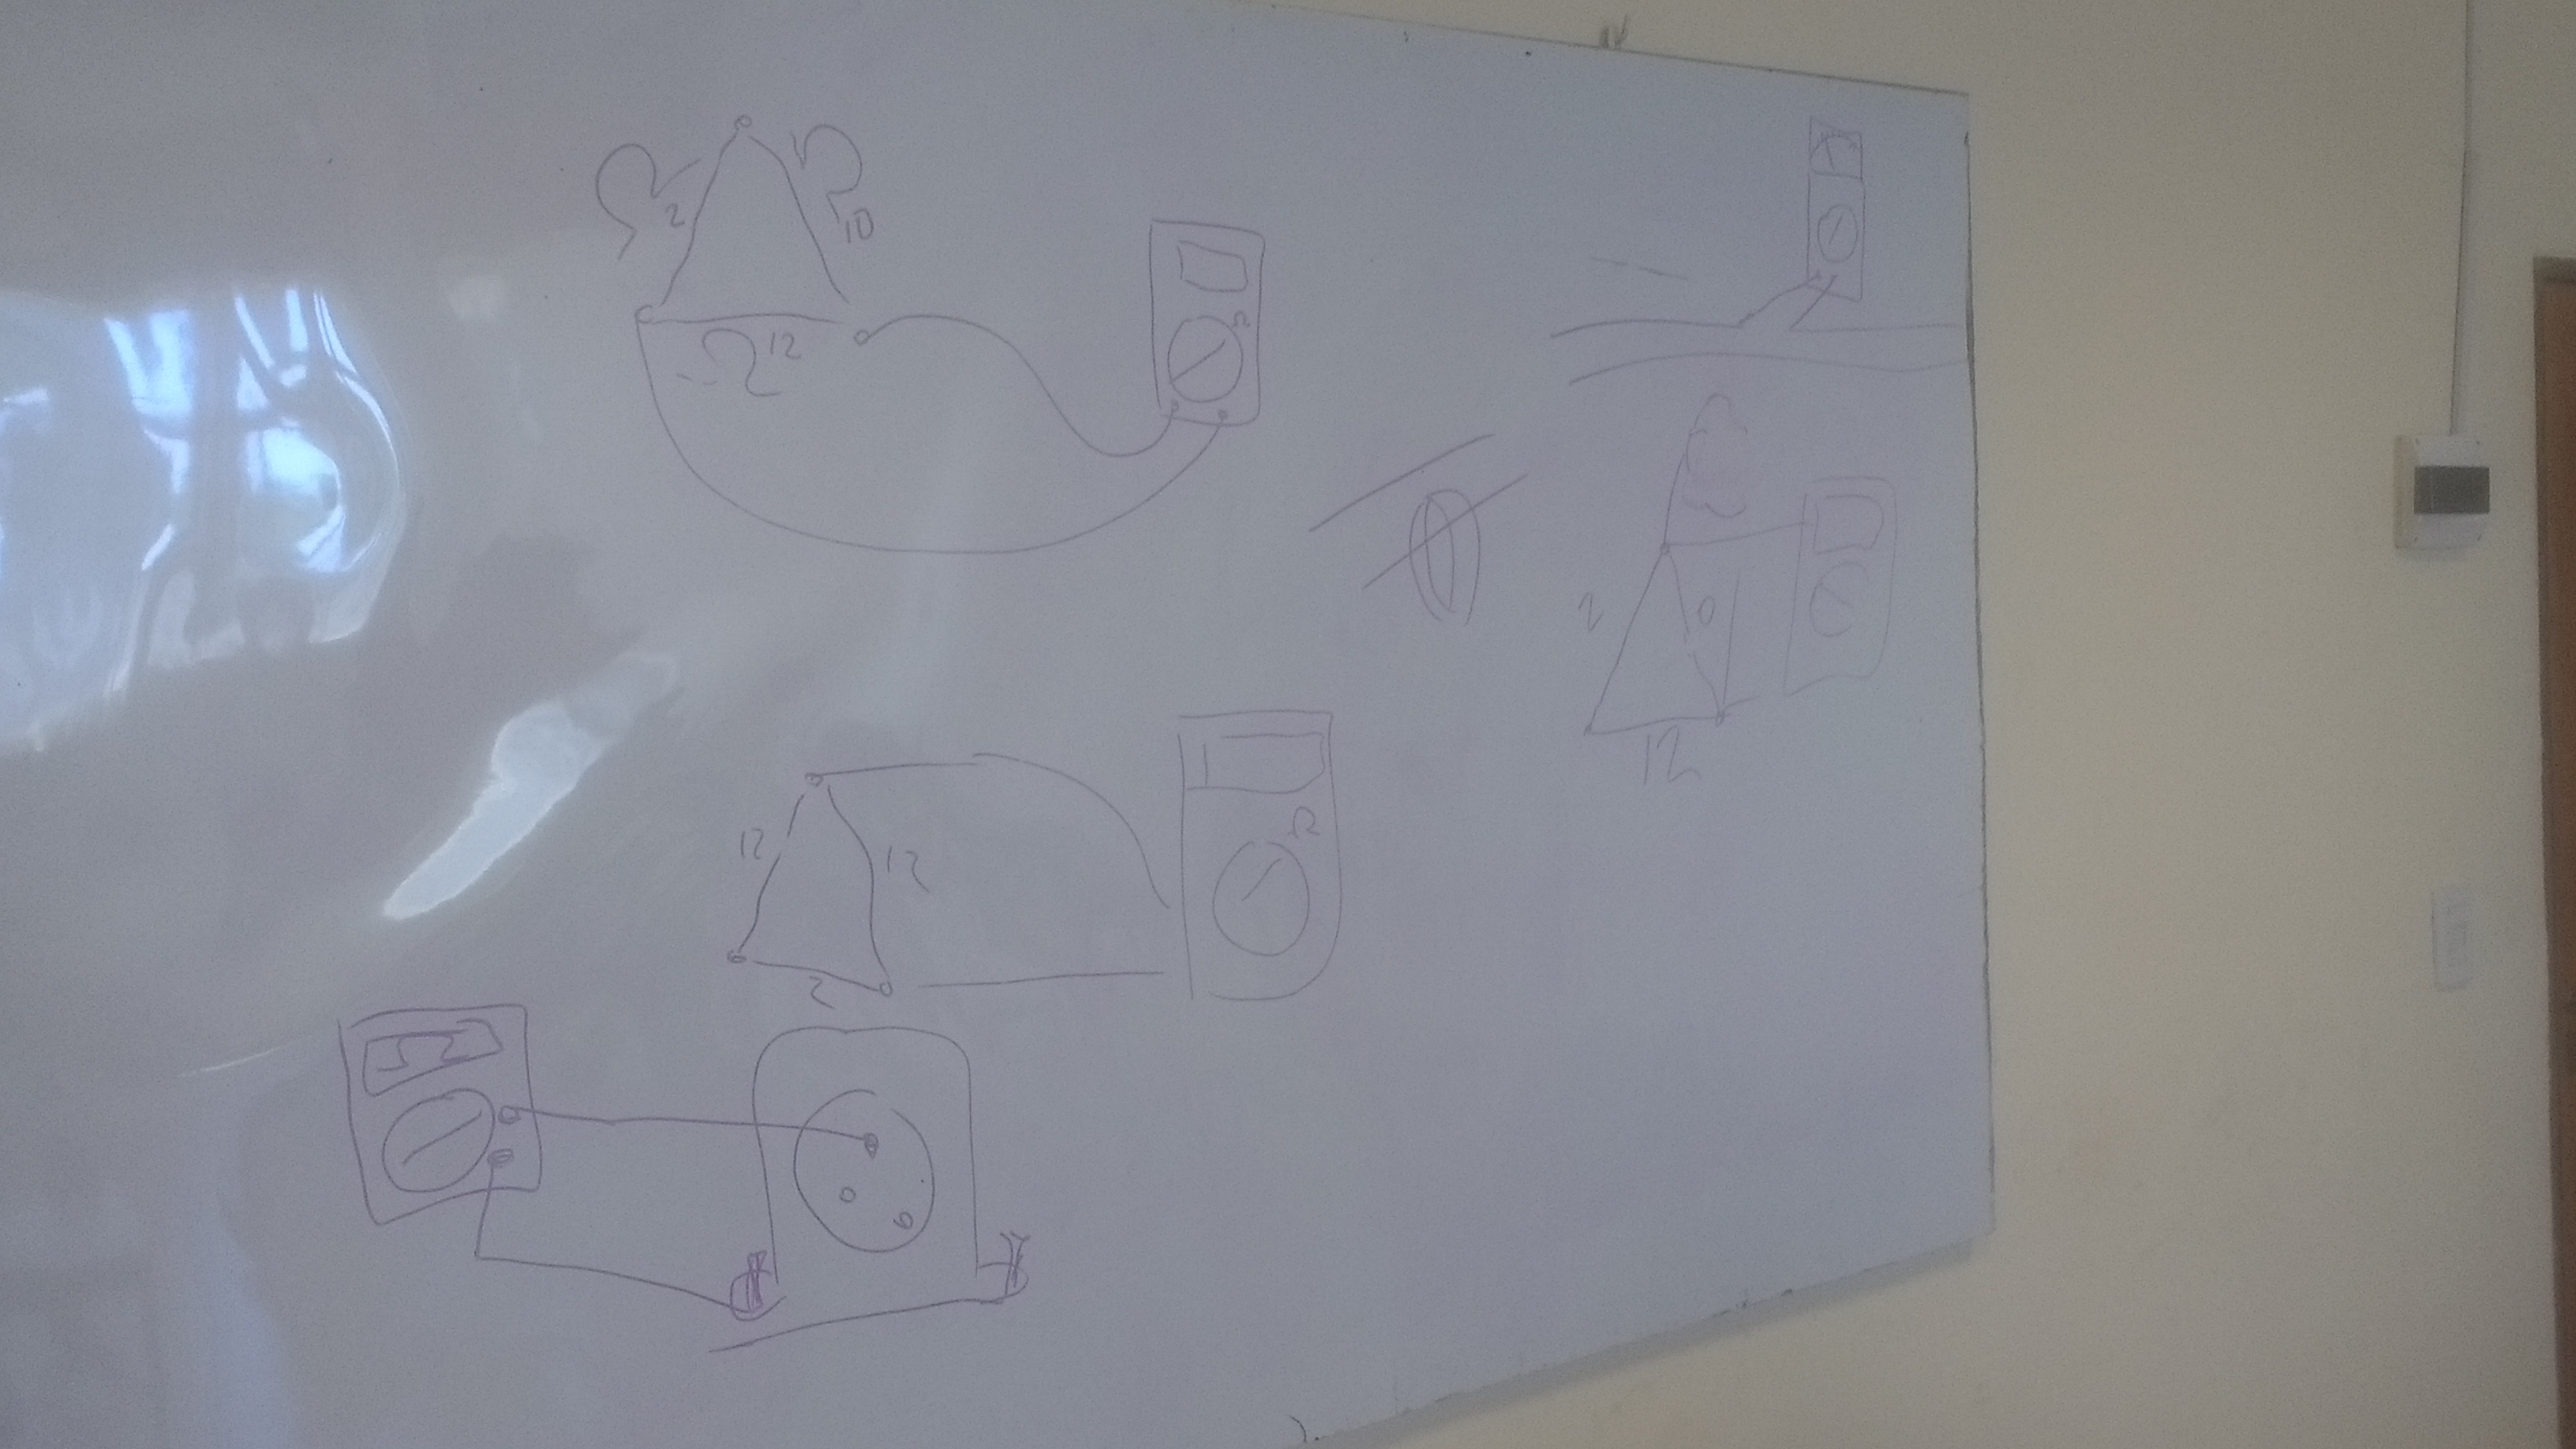 2
10
Ω 12
Ω
2
0
12
12
12
Ω
2
Ω